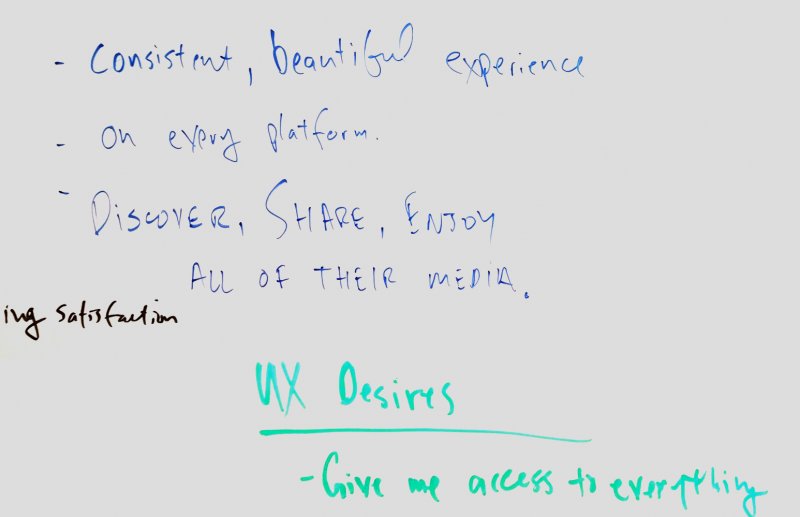 - Consistent, beautiful experience
- on every platform.
- DISCOVER, SHARE, ENJOY
ALL OF THEIR MEDIA.
ing satisfaction
UX Desires
- Give me access to everything